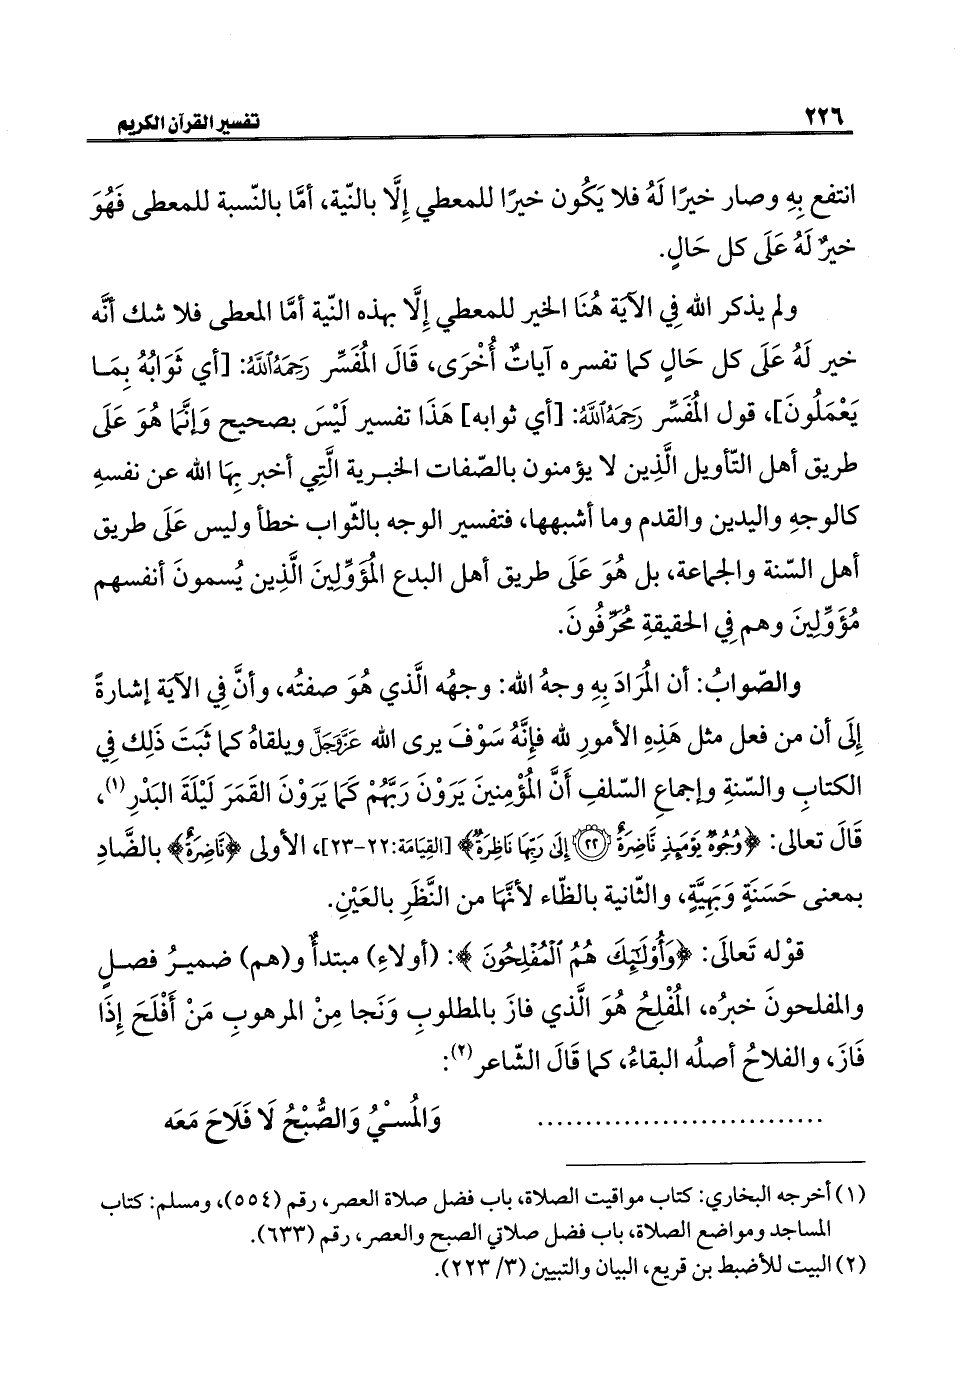 ٢٢٦
تفسير القرآن الكريم
انتفع بِهِ وصار خيرًا لَهُ فلا يَكُون خيرًا للمعطي إِلَّا بالنّية، أمَّا بالنّسبة للمعطى فَهُوَ
خيرٌ لَهُ عَلَى كل حَالٍ.
ولم يذكر الله فِي الآيَة هُنَا الخير للمعطي إِلَّا بهذه النّية أمَّا المعطى فلا شك أنَّه
خير لَهُ عَلَى كل حَالٍ كما تفسره آياتٌ أُخْرَى، قَالَ المُفَسِّر رَحِمَهُ ٱللَّهُ: [أي ثَوَابُهُ بِمَا
يَعْمَلُونَ]، قول المُفَسِّر رَحِمَهُ ٱللَّهُ: [أي ثوابه] هَذَا تفسير لَيْسَ بصحيح وَإِنَّمَا هُوَ عَلَى
طريق أهل التّأويل الَّذِين لا يؤمنون بالصّفات الخبرية الَّتِي أخبر بِهَا الله عن نفسهِ
كالوجهِ واليدين والقدم وما أشبهها، فتفسير الوجه بالثّواب خطأ وليس عَلَى طريق
أهل السّنة والجماعة، بل هُوَ عَلَى طريق أهل البدع المُؤَوِّلِينَ الَّذِين يُسمونَ أنفسهم
مُؤَوِّلِينَ وهم فِي الحقيقةِ مُحَرِّفُونَ.
والصّوابُ: أن المُرَادَ بِهِ وجهُ الله: وجهُه الَّذي هُوَ صفتُه، وأنَّ فِي الآيَة إشارةً
إِلَى أن من فعل مثل هَذِهِ الأمورِ لله فإِنَّهُ سَوْفَ يرى الله عَزَّوَجَلَّ ويلقاهُ كما ثَبَتَ ذَلِك فِي
الكتابِ والسّنةِ وإجماعِ السّلفِ أَنَّ المُؤْمِنينَ يَرَوْنَ رَبَّهُمْ كَمَا يَرَوْنَ القَمَرَ لَيْلَةَ البَدْرِ (١)،
قَالَ تعالى: ﴿وُجُوهٌ يَوْمَئِذٍ نَّاضِرَةٌ ۝٢٢ إِلَىٰ رَبِّهَا نَاظِرَةٌ﴾ [القِيَامَة:٢٢-٢٣]، الأولى ﴿نَّاضِرَةٌ﴾ بالضَّادِ
بمعنى حَسَنَةٍ وَبَهِيَّةٍ، والثّانية بالظّاء لأنَّهَا من النَّظَرِ بالعَيْنِ.
قوْله تَعالَى: ﴿وَأُوْلَٰٓئِكَ هُمُ ٱلْمُفْلِحُونَ﴾: (أولاءِ) مبتدأٌ و(هم) ضميرُ فصلٍ
والمفلحونَ خبرُه، المُفْلِحُ هُوَ الَّذي فازَ بالمطلوبِ وَنَجا مِنْ المرهوبِ مَنْ أَفْلَحَ إِذَا
فَازَ، والفلاحُ أصلُه البقاءُ، كما قَالَ الشّاعر (٢):
............................. وَالمُسْيُ وَالصُّبْحُ لَا فَلَاحَ مَعَه
(١) أخرجه البخاري: كتاب مواقيت الصلاة، باب فضل صلاة العصر، رقم (٥٥٤)، ومسلم: كتاب
المساجد ومواضع الصلاة، باب فضل صلاتي الصبح والعصر، رقم (٦٣٣).
(٢) البيت للأضبط بن قريع، البيان والتبيين (٣/ ٢٢٣).